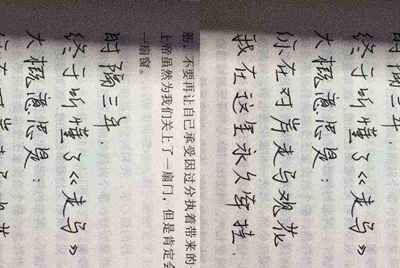 时隔三年.
终于听懂了《走马》
大概意思是：
你在对岸走马观花
我在这里永久牵挂.
不要再让自己承受因过分执着带来的
上帝虽然为我们关上了一扇门，但是肯定会
一扇窗。
时隔三年.
终于听懂了《走马》
大概意思是：